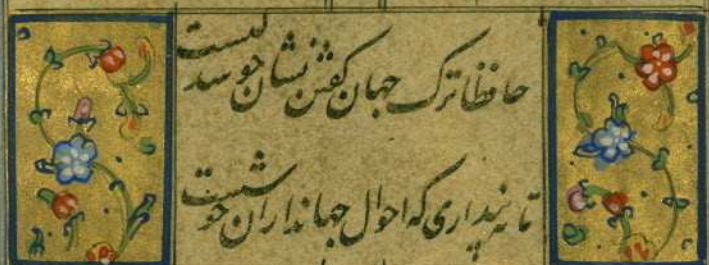 حافظا ترک جهان گفتن نشان خوشدلیست
تا نپنداری که احوال جهانداران خوشست